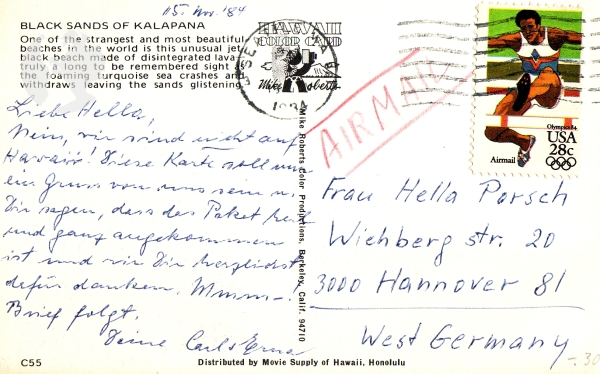 15. Nov. '84
BLACK SANDS OF KALAPANA
One of the strangest and most beautiful
beaches in the world is this unusual jet
black beach made of disintegrated lava -
truly a long to be remembered sight as
the foaming turquoise sea crashes and
withdraws leaving the sands glistening.
HAWAII
COLOR CARD
Mike Roberts
1984
AIRMAIL
Olympics 84
USA
28c
Airmail
Liebe Hella,
Nein, wir sind nicht auf
Hawaii! Diese Karte soll nur
ein Gruss von uns sein u.
Dir sagen, dass das Paket heil
und ganz angekommen
ist und wir Dir herzlichst
dafür danken. Mmmm-!
Brief folgt.
Deine Carl & Erna
Mike Roberts Color Productions, Berkeley, Calif. 94710
Frau Hella Porsch
Wiehberg str. 20
3000 Hannover 81
West Germany
-.30
C55
Distributed by Movie Supply of Hawaii, Honolulu